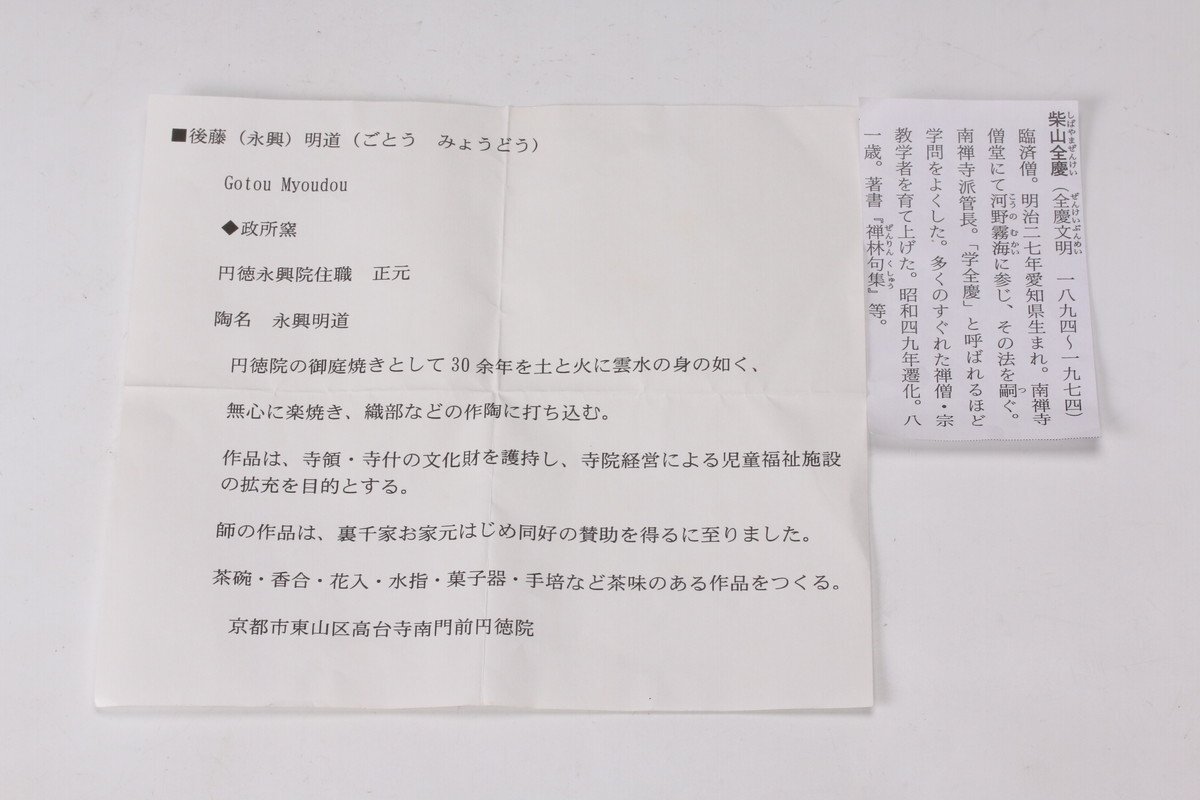 ■後藤（永興）明道（ごとう　みょうどう）
Gotou Myoudou
◆政所窯
円徳永興院住職　正元
陶名　永興明道
円徳院の御庭焼きとして30余年を土と火に雲水の身の如く、
無心に楽焼き、織部などの作陶に打ち込む。
作品は、寺領・寺什の文化財を護持し、寺院経営による児童福祉施設
の拡充を目的とする。
師の作品は、裏千家お家元はじめ同好の賛助を得るに至りました。
茶碗・香合・花入・水指・菓子器・手培など茶味のある作品をつくる。
京都市東山区高台寺南門前円徳院
柴山全慶（全慶文明　一八九四〜一九七四）
しばやまぜんけい
ぜんけいぶんめい
臨済僧。明治二七年愛知県生まれ。南禅寺
僧堂にて河野霧海に参じ、その法を嗣ぐ。
こうの むかい
つ
南禅寺派管長。「学全慶」と呼ばれるほど
学問をよくした。多くのすぐれた禅僧・宗
教学者を育て上げた。昭和四九年遷化。八
一歳。著書『禅林句集』等。
ぜんりんくしゅう